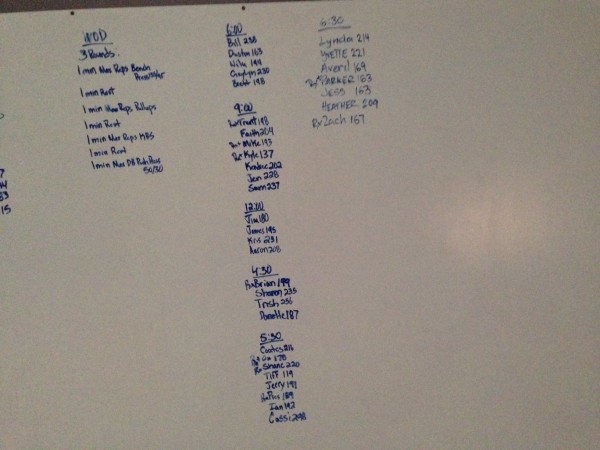 WOD
3 Rounds:
1 min Max Reps Bench
Press 135/95
1 min Rest
1 min Max Reps Pullups
1 min Rest
1 min Max Reps KBS
1 min Rest
1 min Max DB Push Press
50/30
15
6:00
Bill 238
Dustin 163
Nick 194
230
Brett 198
9:00
Trent 198
Faith 204
Rx Mike 193
Rx Kyle 137
202
Jen 228
Sam 237
12:00
Jim 180
James 195
Kris 231
Aaron 208
4:30
Rx Brian 199
Sharon 235
Trish 256
Danielle 187
5:30
Coates 216
170
Rx Shane 220
Tiff 119
Jerry 193
Rx 189
Ian 192
Cassi 298
6:30
Lynda 214
YVETTE 221
Averil 169
Rx PARKER 163
JESS 163
HEATHER 209
Rx Zach 157